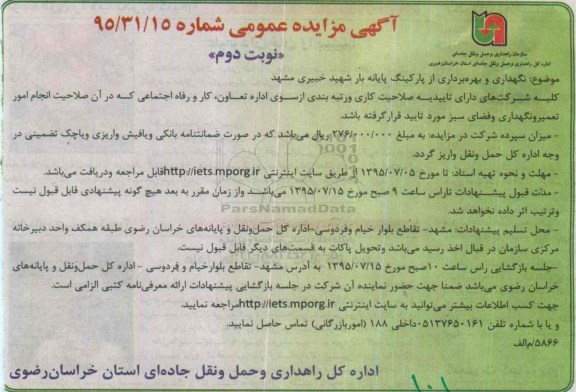 آگهی مزایده عمومی شماره ۹۵/۳۱/۱۵
«نوبت دوم»
سازمان راهداری وحمل ونقل جاده‌ای
اداره کل راهداری وحمل ونقل جاده‌ای استان خراسان‌رضوی
موضوع: نگهداری و بهره‌برداری از پارکینگ پایانه بار شهید خبیری مشهد
کلیه شرکت‌های دارای تاییدیه صلاحیت کاری ورتبه بندی ازسوی اداره تعاون، کار و رفاه اجتماعی که در آن صلاحیت انجام امور
تعمیرونگهداری وفضای سبز مورد تایید قرارگرفته باشد.
- میزان سپرده شرکت در مزایده: به مبلغ ۲۷۶/۰۰۰/۰۰۰ ریال می‌باشد که در صورت ضمانتنامه بانکی ویافیش واریزی ویاچک تضمینی در
وجه اداره کل حمل ونقل واریز گردد.
- مهلت و نحوه تهیه اسناد: تا مورخ ۱۳۹۵/۰۷/۰۵ از طریق سایت اینترنتی http://iets.mporg.ir قابل مراجعه ودریافت می‌باشد.
- مدت قبول پیشنهادات تاراس ساعت ۹ صبح مورخ ۱۳۹۵/۰۷/۱۵ می‌باشد واز زمان مقرر به بعد هیچ گونه پیشنهادی قابل قبول نیست
وترتیب اثر داده نخواهد شد.
ParsNamadData
- محل تسلیم پیشنهادات: مشهد- تقاطع بلوار خیام وفردوسی-اداره کل حمل‌ونقل و پایانه‌های خراسان رضوی طبقه همکف واحد دبیرخانه
مرکزی سازمان در قبال اخذ رسید می‌باشد وتحویل پاکات به قسمت‌های دیگر قابل قبول نیست.
-جلسه بازگشایی راس ساعت ۱۰صبح مورخ ۱۳۹۵/۰۷/۱۵ به آدرس مشهد- تقاطع بلوارخیام و فردوسی - اداره کل حمل‌ونقل و پایانه‌های
خراسان رضوی می‌باشد ضمنا جهت حضور نماینده آن شرکت در جلسه بازگشایی پیشنهادات ارائه معرفی‌نامه کتبی الزامی است.
جهت کسب اطلاعات بیشتر می‌توانید به سایت اینترنتی http://iets.mporg.ir مراجعه نمایید.
و یا با شماره تلفن ۰۵۱۳۷۶۵۰۱۶۱داخلی ۱۸۸ (اموربازرگانی) تماس حاصل نمایید.
۵۸۶۶/م‌الف
اداره کل راهداری وحمل ونقل جاده‌ای استان خراسان‌رضوی